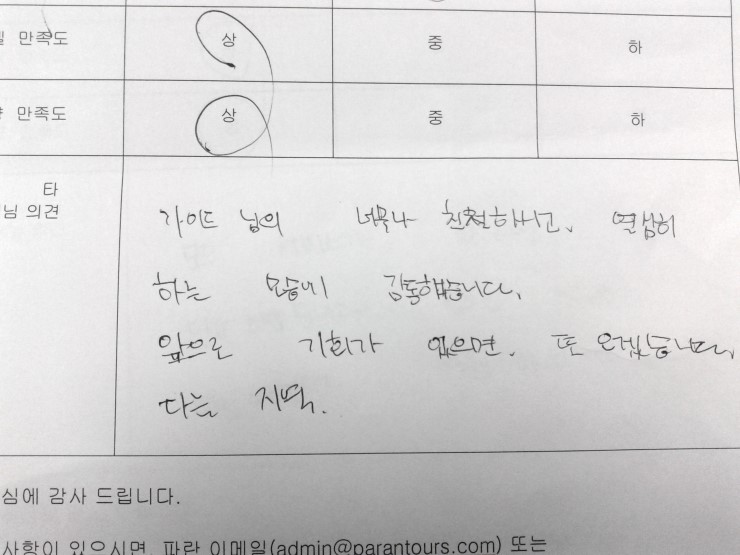 만족도 상 중 하
만족도 상 중 하
타
님 의견
가이드 님의 너무나 친절하시고, 열심히
하는 모습에 감동했습니다.
앞으로 기회가 있으면, 또 오겠습니다.
다른 지역.
심에 감사 드립니다.
사항이 있으시면, 파란 이메일(admin@parantours.com) 또는